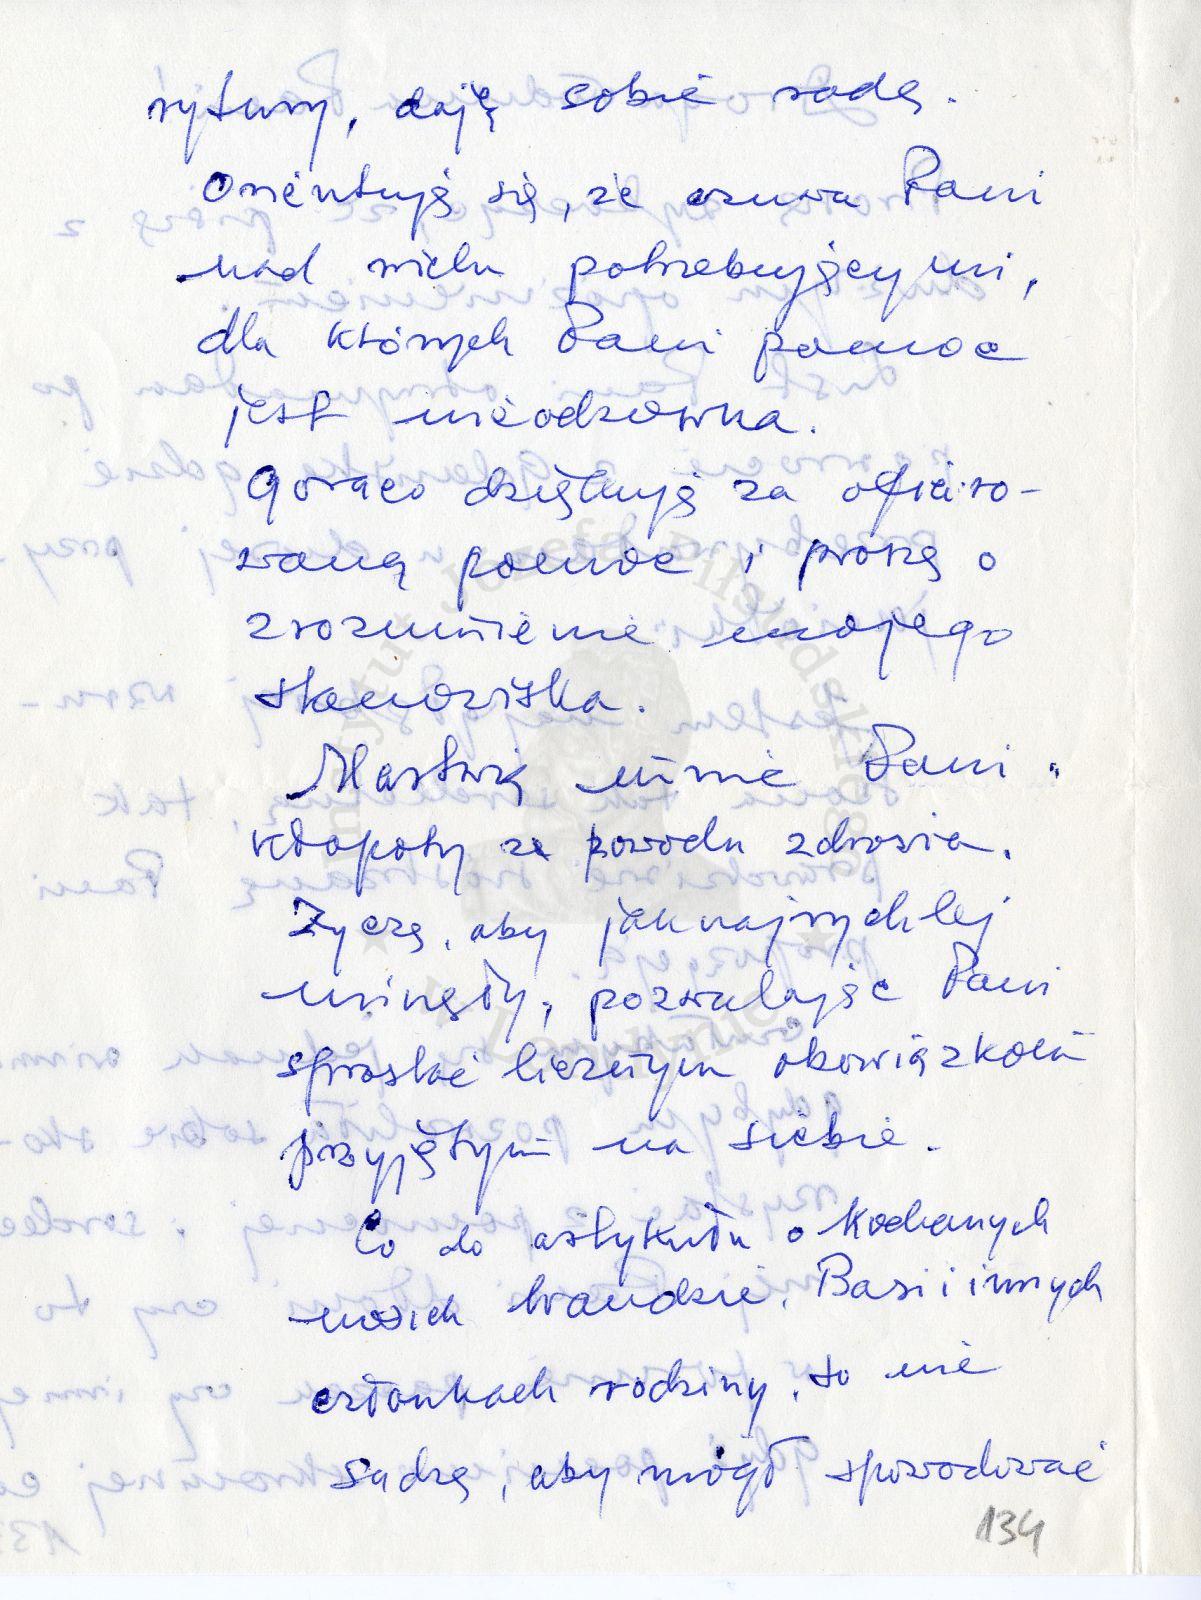 rytury, daję sobie radę.
Orientuję się, że czuwa Pani
nad wielu potrzebującymi,
dla których Pani pomoc
jest nieodzowna.
Gorąco dziękuję za ofiaro-
waną pomoc i proszę o
zrozumienie mojego
stanowiska.
Martwią mnie Pani
kłopoty ze powodu zdrowia.
Życzę, aby jaknajrychlej
minęły, pozwalając Pani
sprostać licznym obowiązkom
przyjętym na siebie.
Co do artykułu o kochanych
moich Wandzie, Basi i innych
członkach rodziny, to nie
sądzę, aby mógł spowodować
134
Instytut Józefa Piłsudskiego
w Londynie